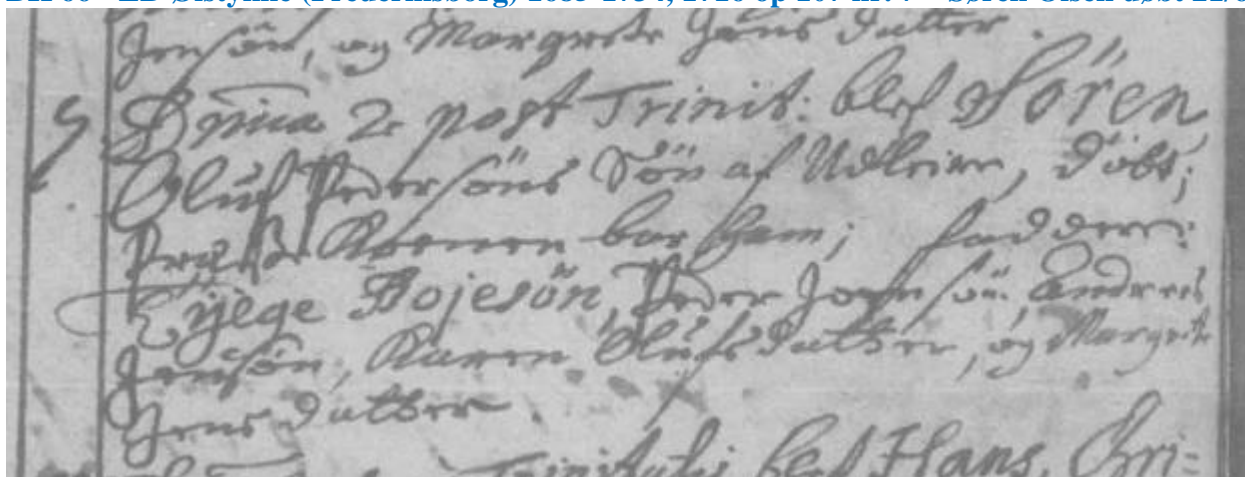 Jensön, og Margrete Jensdatter.
9 Dnica 2 post Trinit: blef Sören
Oluf Pedersöns Sön af Udleire, döbt;
Præste Konen bar ham; fadderne:
Tyjege Bojesön, Peder Jensön, Andreas
Jensön, Karen Olufsdatter, og Margrete
Jensdatter.
Trinitatis blef Hans, Chri-